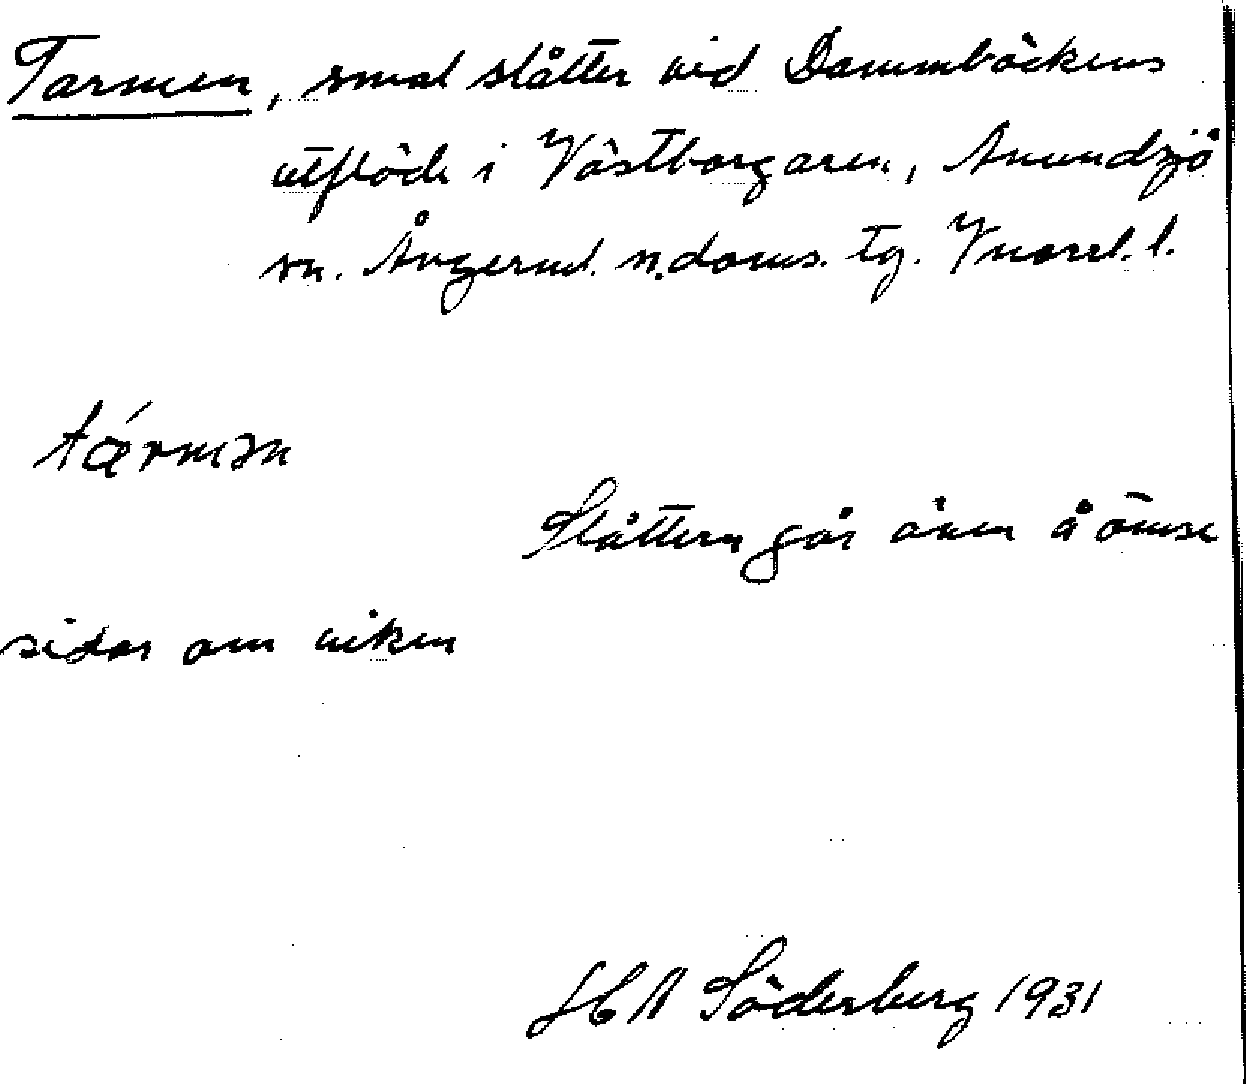 Tarmen, smal slåtter vid Dammbäckens
utflöde i Västborgaren, Anundsjö
sn. Ångerml. n.doms. tg. Västl. l.
tármən
Slåttern går även å ömse
sidor om viken
HA Söderberg 1931